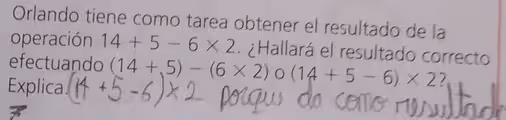 Orlando tiene como tarea obtener el resultado de la
operación 14 + 5 − 6 × 2. ¿Hallará el resultado correcto
efectuando (14 + 5) − (6 × 2) o (14 + 5 − 6) × 2?
Explica. (14 + 5 - 6) × 2 porque da como resultado
7